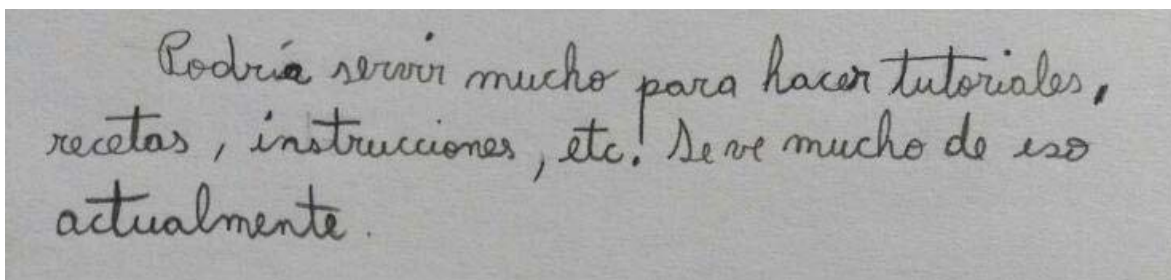 Podría servir mucho para hacer tutoriales,
recetas, instrucciones, etc. Se ve mucho de eso
actualmente.